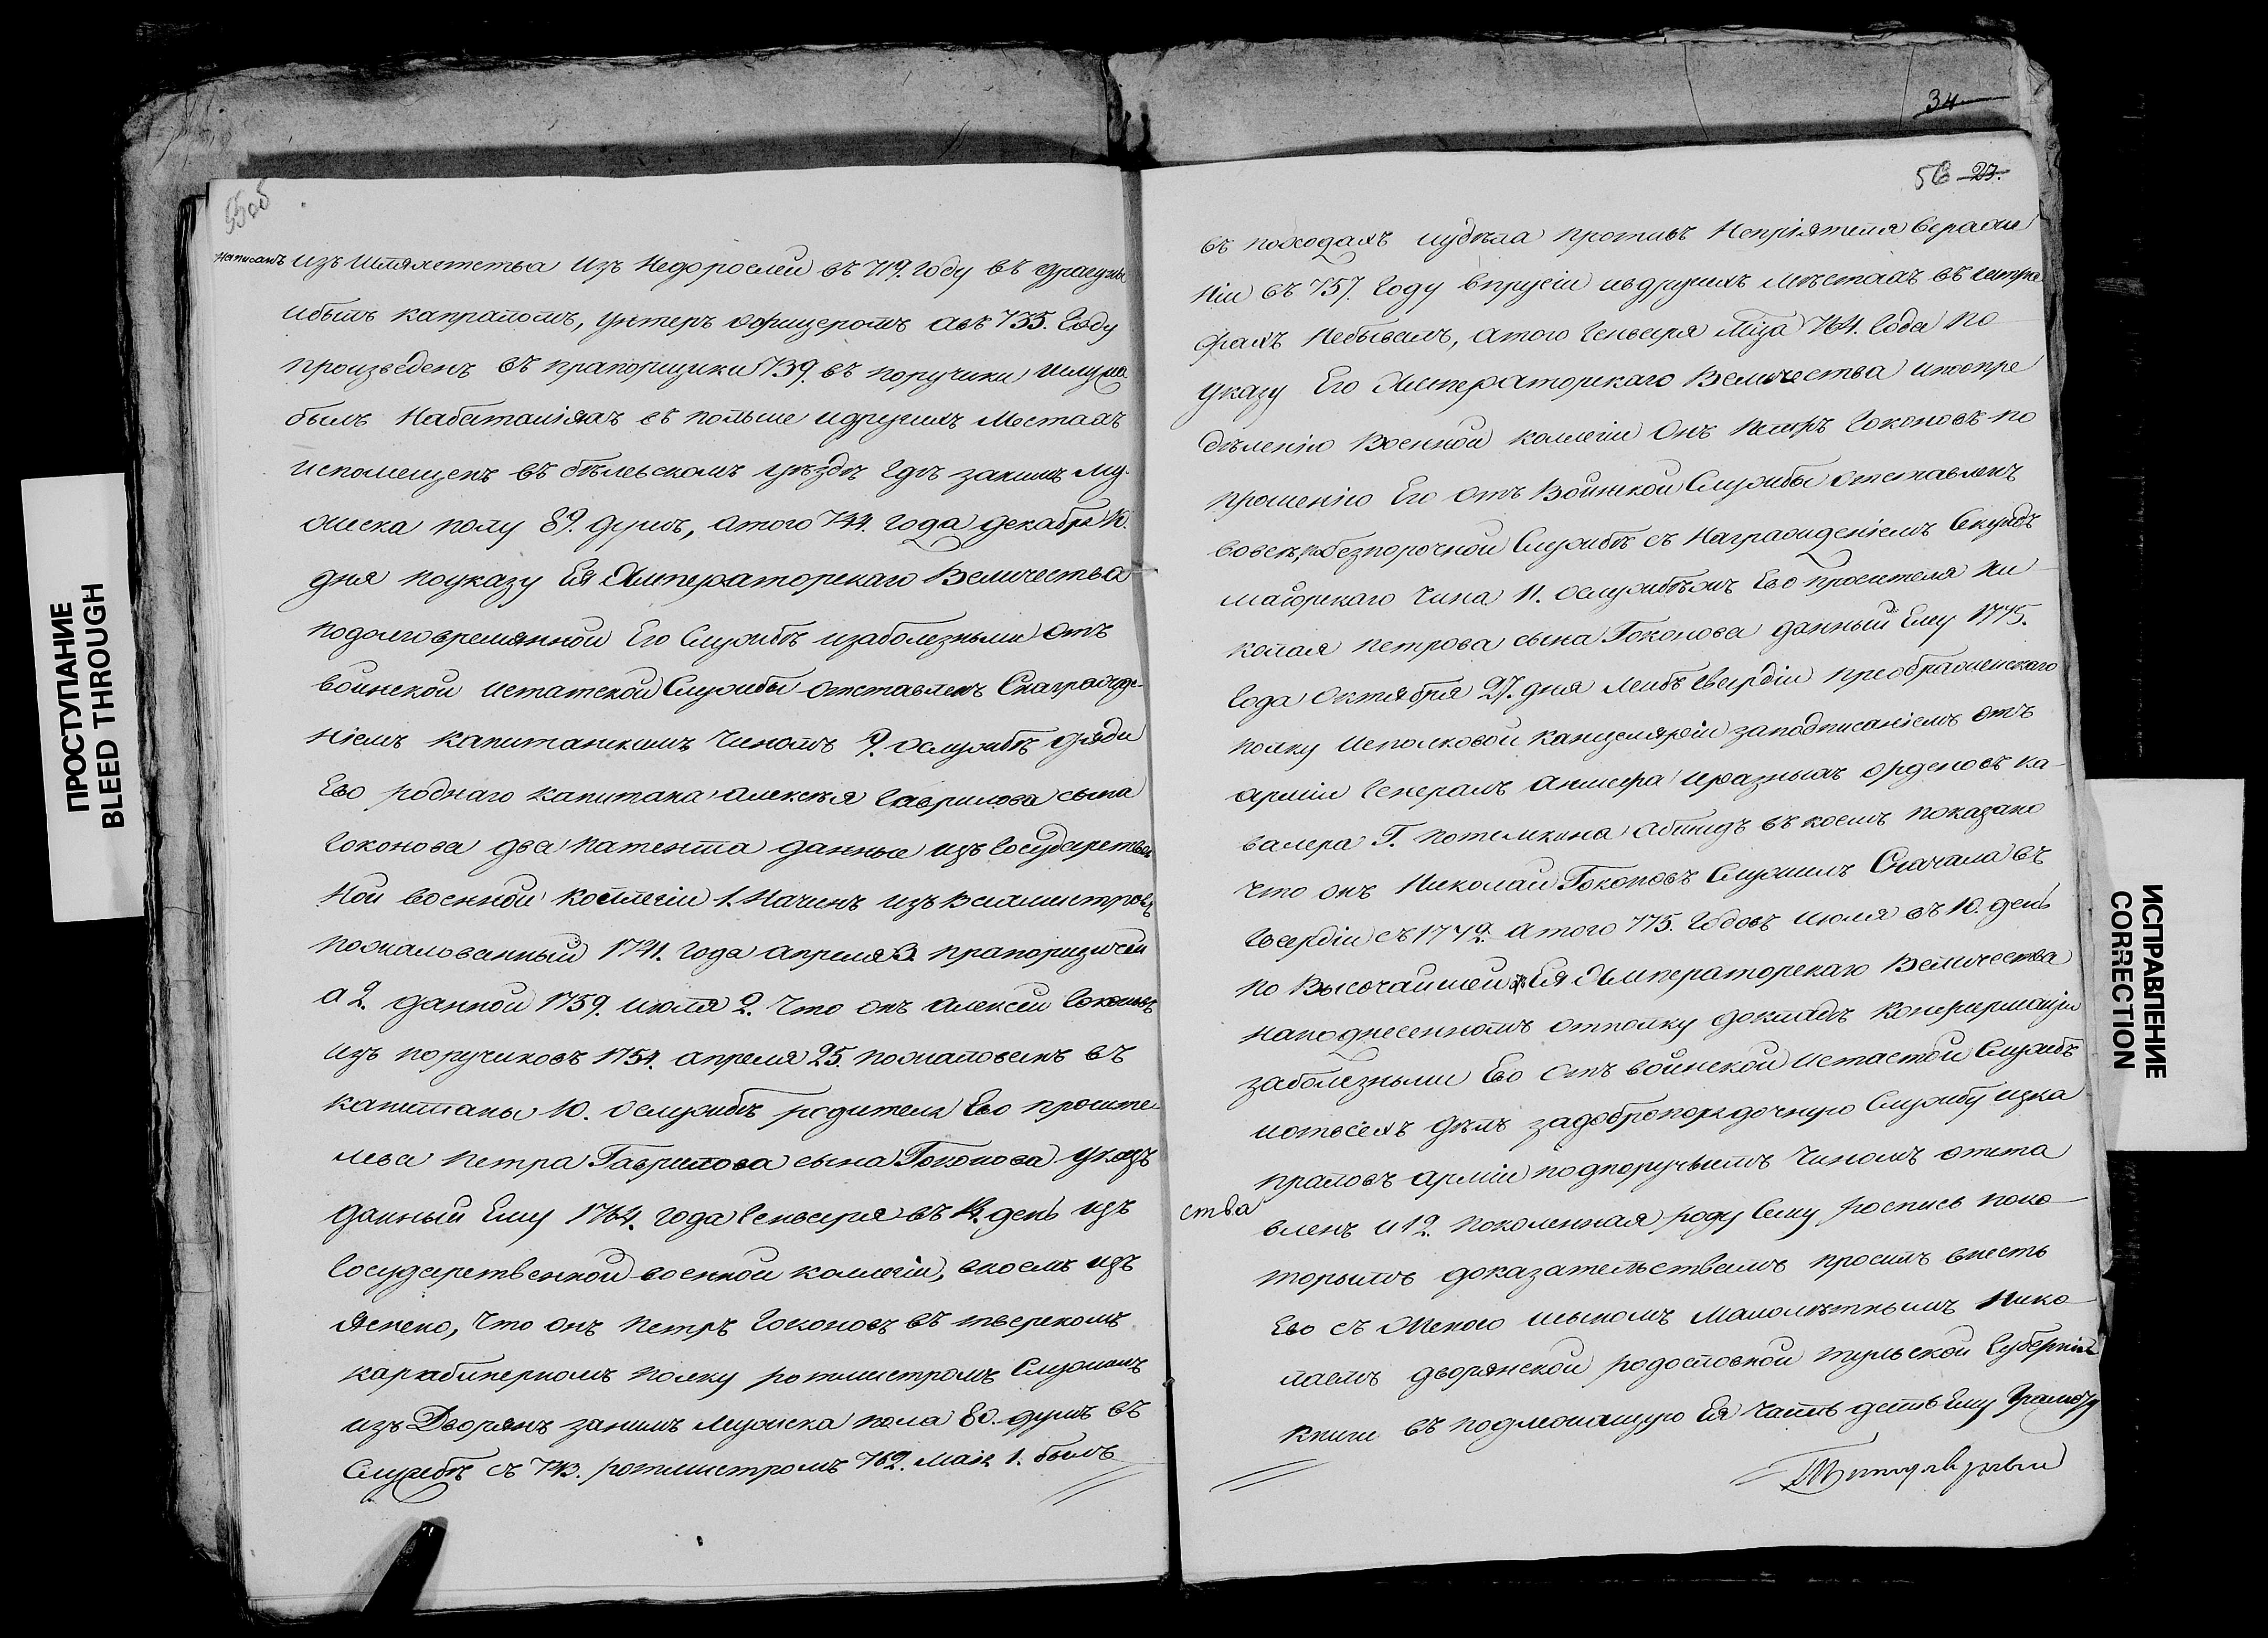 55об
написанъ изъ шляхетства изъ недорослей въ 719. году въ драгуны
ибылъ капраломъ, унтеръ офицеромъ авъ 735. году
произведенъ въ прапорщики 739. въ поручики
былъ набаталіяхъ въ польше идругихъ местахъ
испомещенъ въ бѣлевскомъ уѣздѣ гдѣ занимъ му-
жеска полу 89. душъ, атого 744. года декабря 10.
дня поуказу Ея Императорскаго Величества
подолговремянной Его Службѣ изаболезньми отъ
воинской истатской Службы отставленъ Снагражде-
ніемъ капитанскимъ чиномъ 9. ослужбѣ дяди
Ево роднаго капитана алексѣя Гаврилова сына
Гоконова два патента данные изъ Государствен
ной военной коллегіи 1. Начинъ изъ вахмистровъ
пожалованный 1741. года апреля 3. прапорщичей
а 2. данной 1759. июля 2. что онъ алексей Гоконовъ
изъ поручиковъ 1754. апреля 25. пожалованъ въ
капитаны 10. ослужбѣ родителя Ево просите-
лева петра Гаврилова сына Гоконова указъ
данный Ему 1764. года Генваря въ 14. день изъ
Государственной военной коллегіи, вкоемъ изъ
яснено, что онъ петръ Гоконовъ въ тверскомъ
карабинерномъ полку ротмистромъ Служилъ
изъ Дворянъ занимъ мужеска пола 80. душъ въ
Службѣ съ 743. ротмистромъ 762. маія 1. былъ
34
56 23.
въ походахъ ипротивъ непріятеля всраже
ніи въ 757. году впрусіи ивдругихъ мѣстахъ въ штра
фахъ небывалъ, атого Генваря мѣца 764. года по
указу Его Императорскаго Величества ипоопре
дѣленію военной коллегіи онъ петръ Гоконовъ по
прошенію Его отъ воинской Службы отставленъ
вовсе, побезпорочной Службѣ съ награжденіемъ Секундъ
маіорскаго чина 11. ослужбѣ Ево просителя ни
колая петрова сына Гоконова данный Ему 1775.
года октября 27. дня лейбъ гвардіи преображенскаго
полку исполковой канцеляріи заподписаніемъ отъ
арміи Генералъ аншефа иразныхъ орденовъ ка-
валера Г. потемкина абшидъ въ коемъ показано
что онъ Николай Гоконовъ Служилъ Сначала въ
Гвардіи съ 1772. атого 775. годовъ июля въ 10. день
по Высочайшей Ея Императорскаго Величества
наподнесенномъ отполку докладѣ конфирмаціи
заболезньми Ево отъ воинской истатской Службъ
иотвсехъ дѣлъ задобропорядочную Службу изка
праловъ арміи подпоручьимъ чиномъ отста
вленъ и 12. поколенная роду Сему роспись поко-
ства
торымъ доказательствамъ проситъ внесть
Ево съ женою исыномъ малолѣтнымъ нико-
лаемъ дворянской родословной тульской Губерніи
книги въ подлежащую Ея часть дать Ему Грамоту
ПРОСТУПАНИЕ
BLEED THROUGH
ИСПРАВЛЕНИЕ
CORRECTION